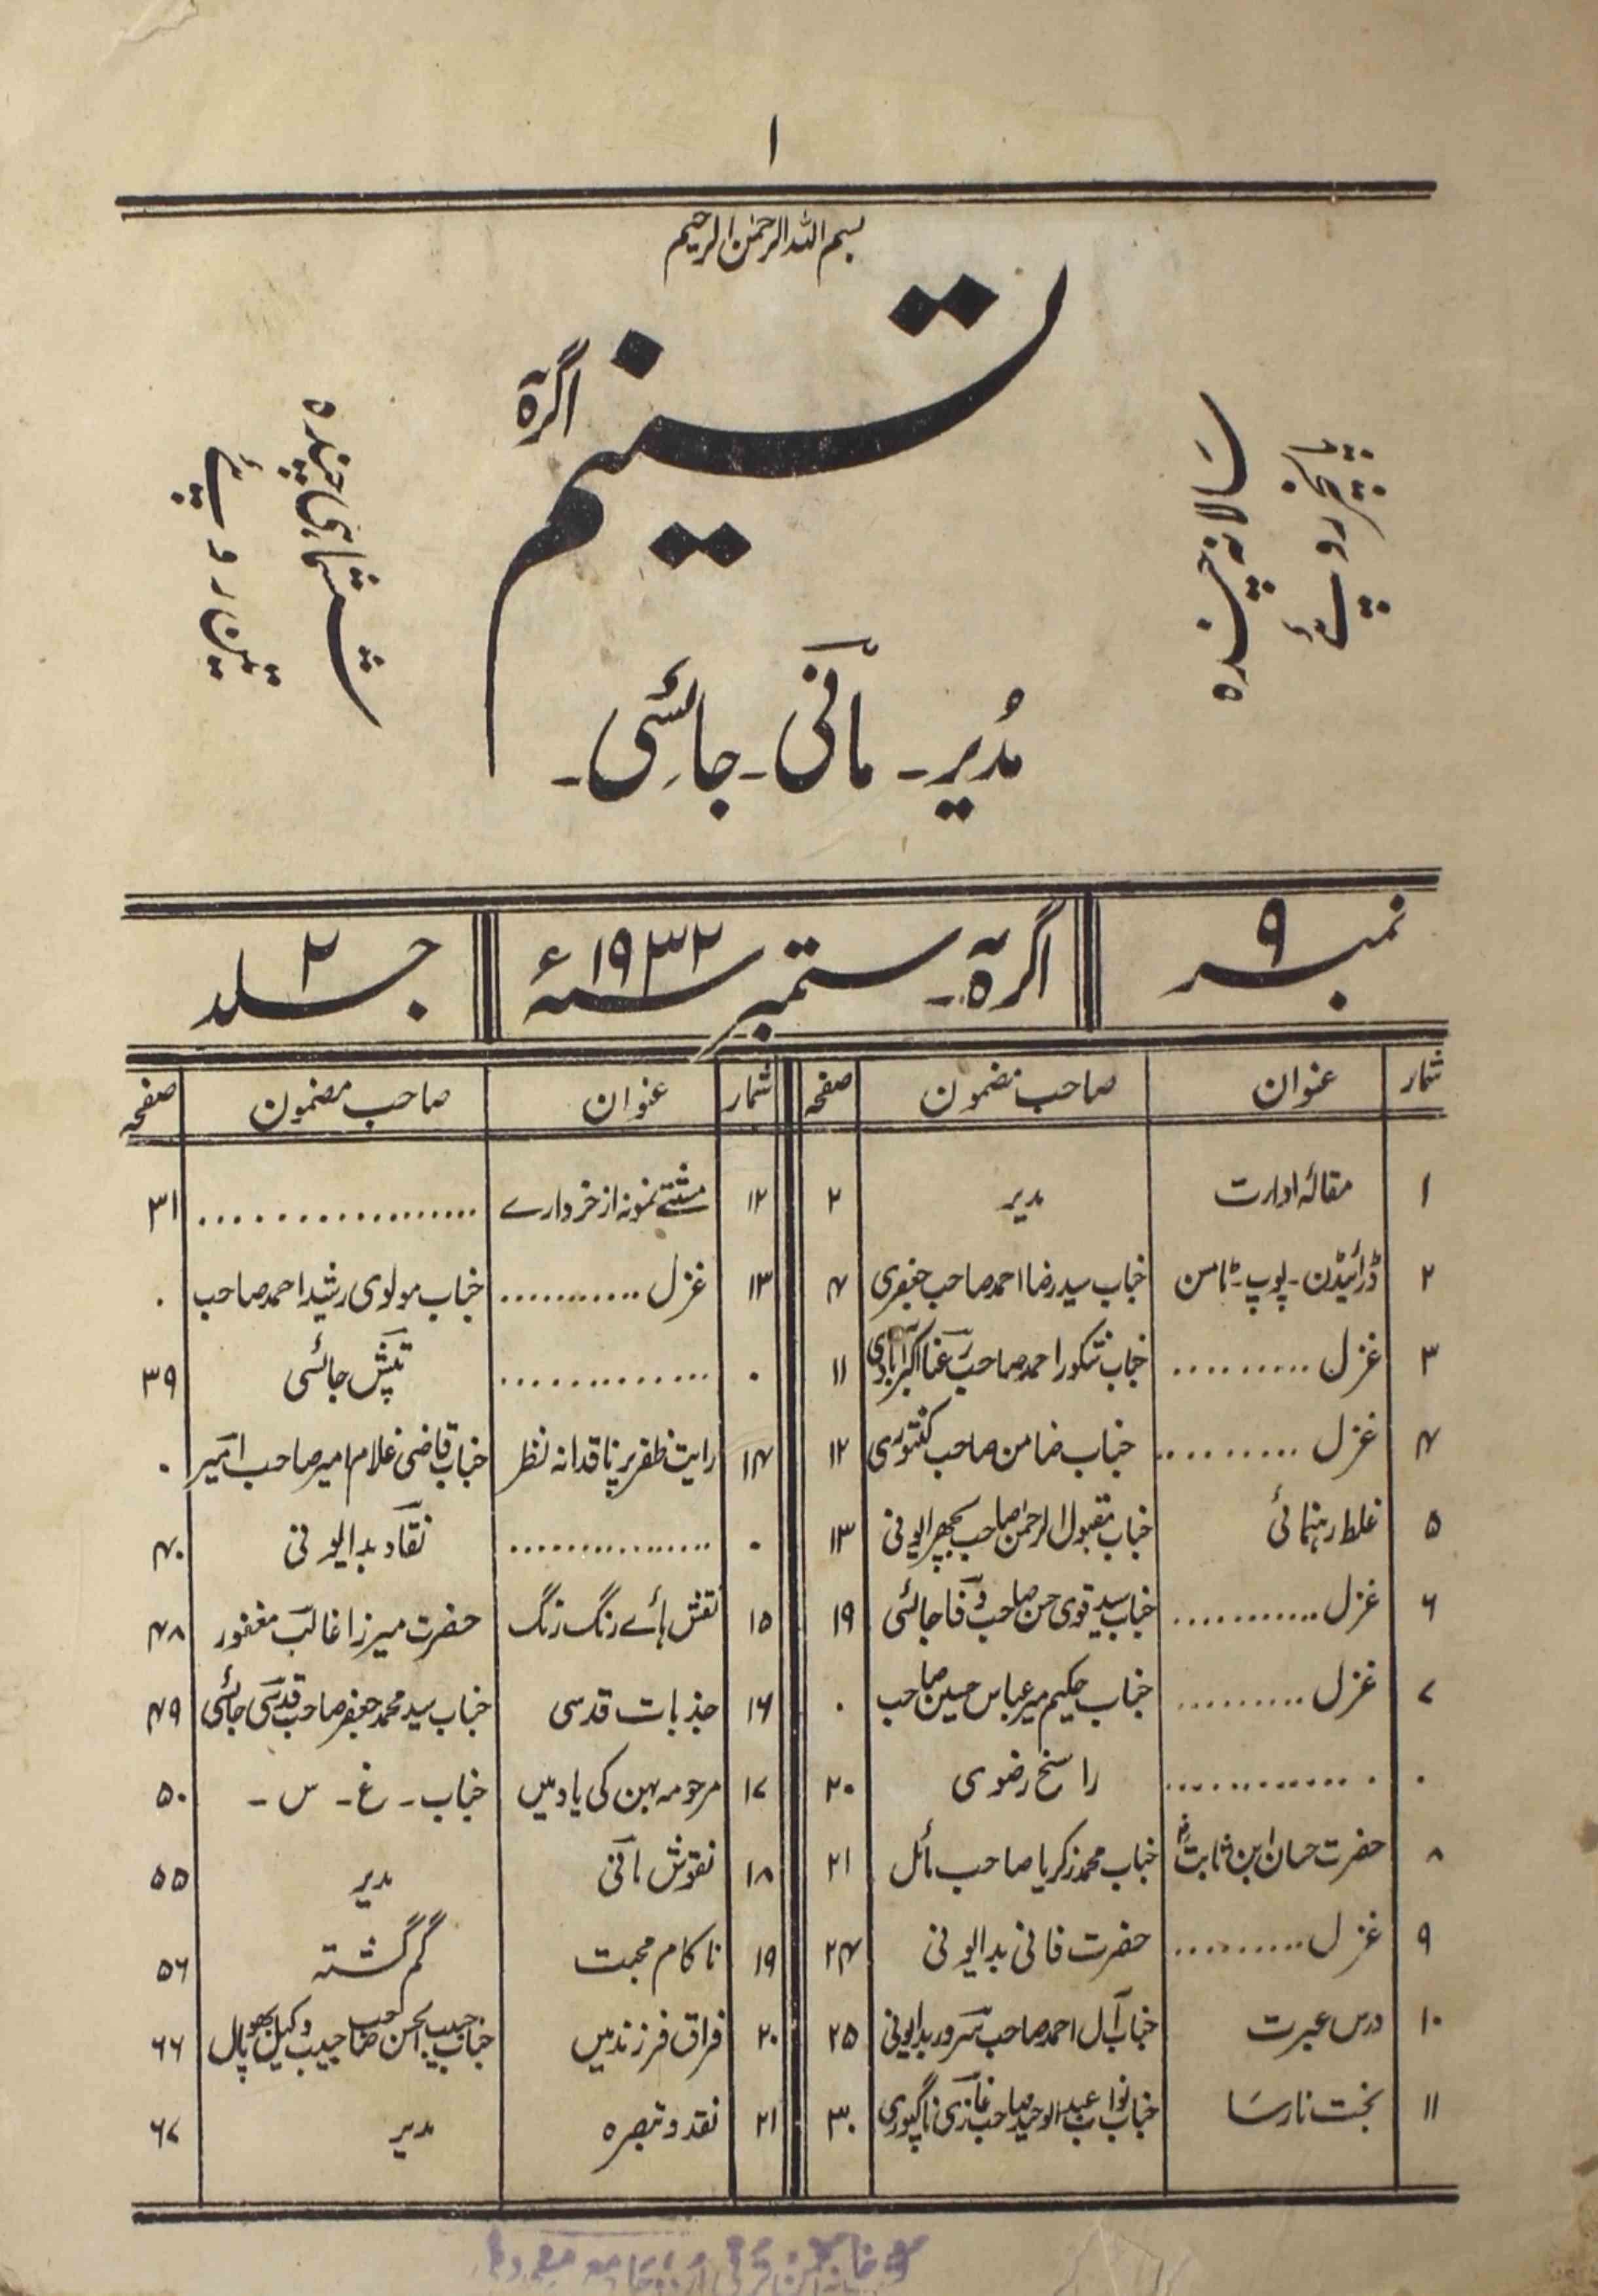 ۱
بسم اللہ الرحمٰن الرحیم
تسنیم
اگرہ
سالانہ چندہ
پانچروپئے
ششماہی چندہ
تین روپئے
مُدیر ۔ مانی ۔ جائسی ۔
نمبر ۹
اگرہ ۔ ستمبر سنہ ۱۹۳۲ء
جلد ۲
شمار عنوان صاحب مضمون صفحہ
۱ مقالہ ادارت مدیر ۲
۲ ڈرائیڈن ۔ پوپ ۔ ٹامسن جناب سید رضا احمد صاحب جعفری ۴
۳ غزل .......... جناب شکور احمد صاحب رعنا اکبرآبادی ۱۱
۴ غزل .......... جناب ضامن صاحب کنتوری ۱۲
۵ غلط رہنمائی جناب مقبول الرحمٰن صاحب بچھرایونی ۱۳
۶ غزل .......... جناب سید قوی حسن صاحب وفا جائسی ۱۹
۷ غزل .......... جناب حکیم میر عباس حسین صاحب ۰
۰ .......... راسخ رضوی ۲۰
۸ حضرت حسان ابن ثابتؓ جناب محمد زکریا صاحب مائل ۲۱
۹ غزل .......... حضرت فانی بدایونی ۲۴
۱۰ درس عبرت جناب آل احمد صاحب سرور بدایونی ۲۵
۱۱ بخت نارسا جناب نواب عبدالوحید صاحب غازی ناگپوری ۳۰
شمار عنوان صاحب مضمون صفحہ
۱۲ مشتے نمونہ از خروارے .......... ۳۱
۱۳ غزل .......... جناب مولوی رشید احمد صاحب ۰
۰ .......... تپش جائسی ۳۹
۱۴ رایت ظفر پر ناقدانہ نظر جناب قاضی غلام امیر صاحب امیر ۰
۰ .......... نقاد بدایونی ۴۰
۱۵ نقش ہائے رنگ رنگ حضرت میرزا غالب مغفور ۴۸
۱۶ جذبات قدسی جناب سید محمد جعفر صاحب قدسی جائسی ۴۹
۱۷ مرحومہ بہن کی یاد میں جناب ۔ غ ۔ س ۔ ۵۰
۱۸ نقوش مانی مدیر ۵۵
۱۹ ناکام محبت گم گشتہ ۵۶
۲۰ فراق فرزند میں جناب حبیب الحسن صاحب حبیب وکیل بھوپال ۶۶
۲۱ نقد و تبصرہ مدیر ۶۷